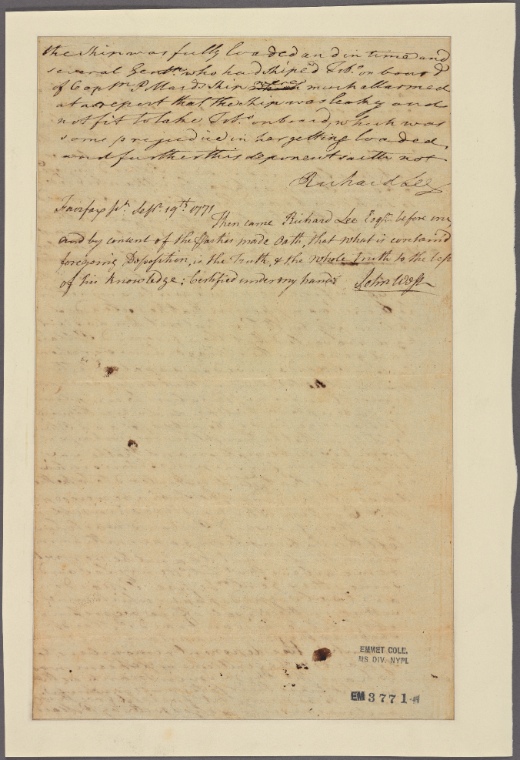 the Ship was fully loaded and in time and
several Gentn. who had Shiped Tobo. on board
of Captn. Ships were much allarmed
at a report that the Ship was leaky and
not fit to take Tobo. onboard, which was
some prejudice in her getting loaded,
and further this deponent saith not
Richard Lee
Fairfax Ss. Sepr. 19th 1771
Then came Richard Lee Esqr. before me,
and by consent of the Parties made Oath, that what is containd
foregoing Deposition, is the Truth, & the whole Truth to the best
of his Knowledge; Certified under my hand John West
EMMET COLL.
MS DIV. NYPL
EM 3771